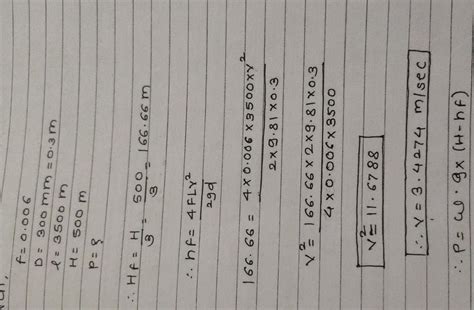 f = 0.006
D = 300 mm = 0.3m
l = 3500 m
H = 500 m
P = ?
∴ Hf = H/3 = 500/3 = 166.66 m
∴ hf = 4FLV²/2gd
166.66 = 4 x 0.006 x 3500 x V²/2 x 9.81 x 0.3
V² = 166.66 x 2 x 9.81 x 0.3/4 x 0.006 x 3500
V² = 11.6788
∴ V = 3.4274 m/sec
∴ P = ω · g x (H - hf)